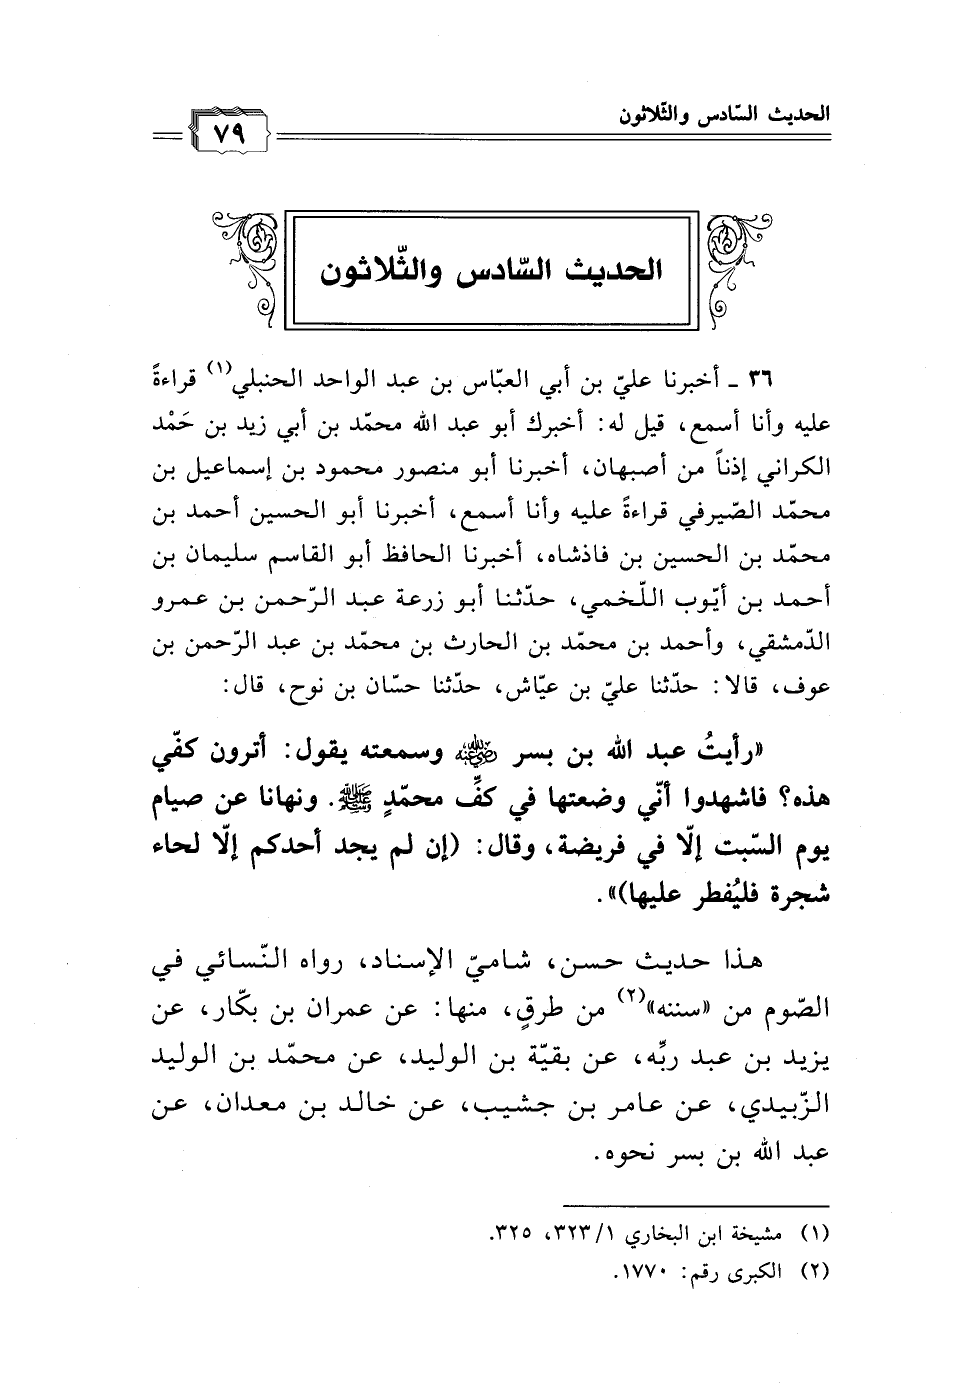 الحديث السّادس والثّلاثون
٧٩
الحديث السّادس والثّلاثون
٣٦ ـ أخبرنا عليّ بن أبي العبّاس بن عبد الواحد الحنبلي(١) قراءةً
عليه وأنا أسمع، قيل له: أخبرك أبو عبد الله محمّد بن أبي زيد بن حَمْد
الكراني إذناً من أصبهان، أخبرنا أبو منصور محمود بن إسماعيل بن
محمّد الصّيرفي قراءةً عليه وأنا أسمع، أخبرنا أبو الحسين أحمد بن
محمّد بن الحسين بن فاذشاه، أخبرنا الحافظ أبو القاسم سليمان بن
أحمد بن أيّوب اللّخمي، حدّثنا أبو زرعة عبد الرّحمن بن عمرو
الدّمشقي، وأحمد بن محمّد بن الحارث بن محمّد بن عبد الرّحمن بن
عوف، قالا: حدّثنا عليّ بن عيّاش، حدّثنا حسّان بن نوح، قال:
«رأيتُ عبد الله بن بسر رضي الله عنه وسمعته يقول: أترون كفّي
هذه؟ فاشهدوا أنّي وضعتها في كفِّ محمّدٍ ﷺ. ونهانا عن صيام
يوم السّبت إلّا في فريضة، وقال: (إن لم يجد أحدكم إلّا لحاء
شجرة فليُفطر عليها)».
هذا حديث حسن، شاميّ الإسناد، رواه النّسائي في
الصّوم من «سننه»(٢) من طرقٍ، منها: عن عمران بن بكّار، عن
يزيد بن عبد ربِّه، عن بقيّة بن الوليد، عن محمّد بن الوليد
الزّبيدي، عن عامر بن جشيب، عن خالد بن معدان، عن
عبد الله بن بسر نحوه.
(١) مشيخة ابن البخاري ١/ ٣٢٣، ٣٢٥.
(٢) الكبرى رقم: ١٧٧٠.